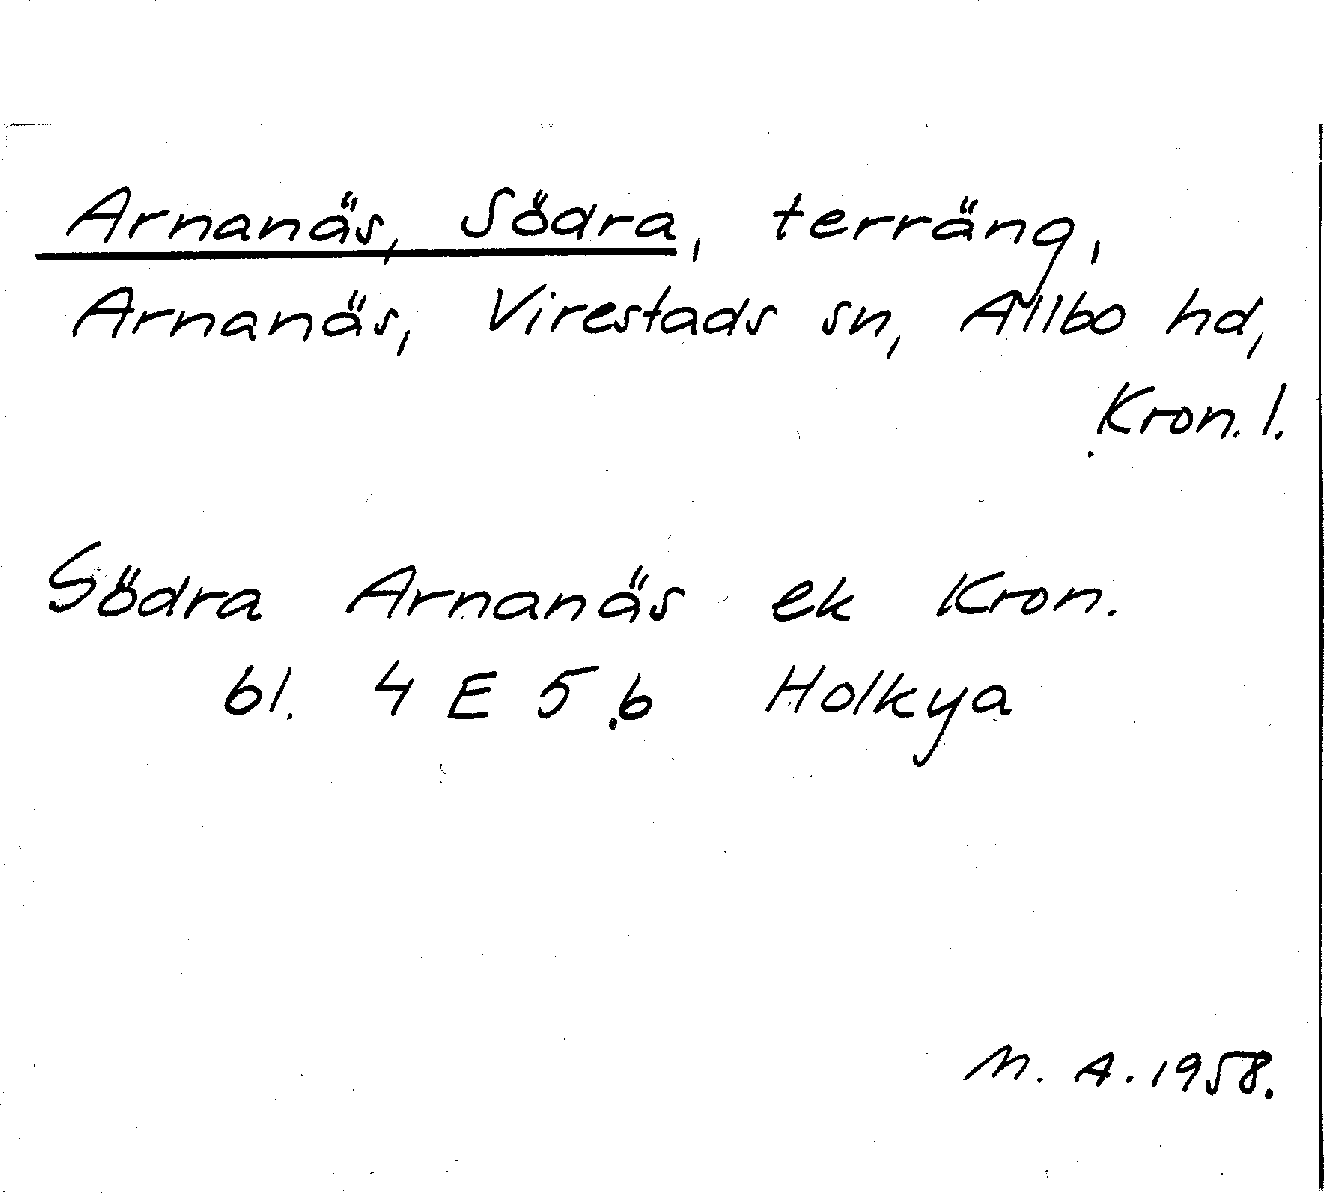 Arnanäs, Södra, terräng,
Arnanäs, Virestads sn, Allbo hd,
Kron. l.
Södra Arnanäs ek Kron.
bl. 4 E 5 b Holkya
M. A. 1958.